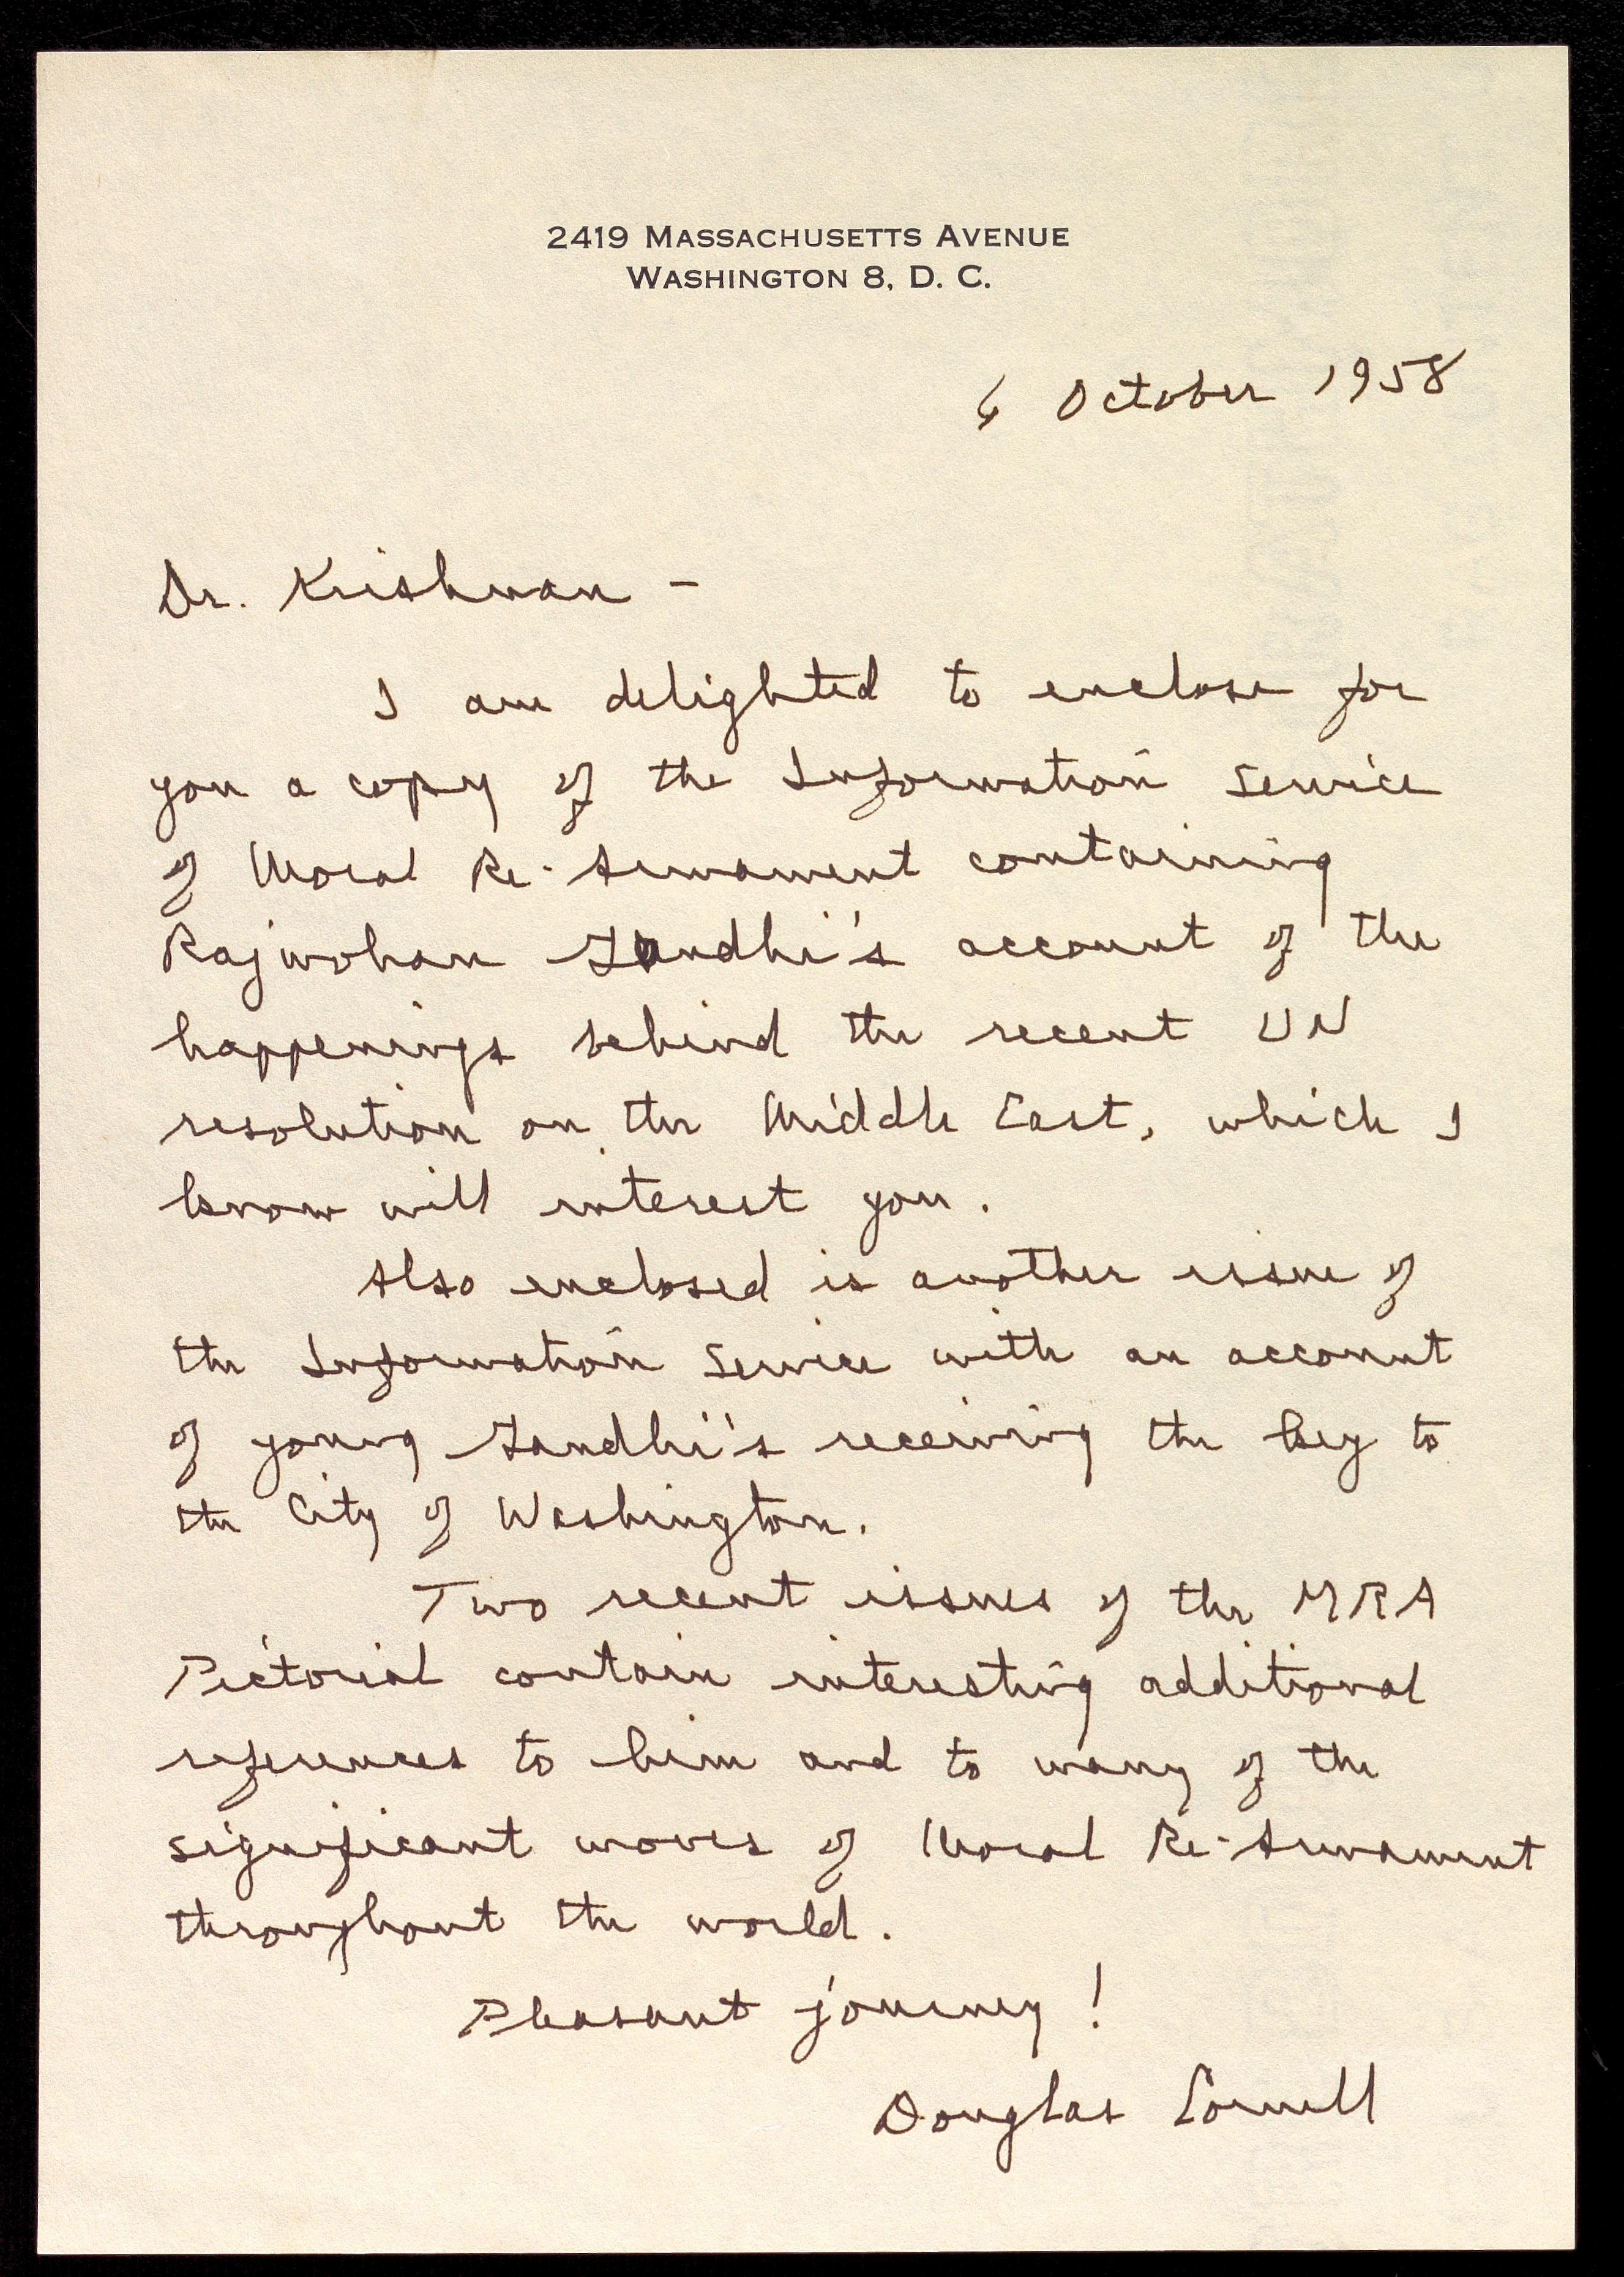 2419 MASSACHUSETTS AVENUE
WASHINGTON 8, D. C.
6 October 1958
Dr. Krishnan -
I am delighted to enclose for
you a copy of the Information Service
of Moral Re-Armament containing
Rajmohan Gandhi's account of the
happenings behind the recent UN
resolution on the Middle East, which I
know will interest you.
Also enclosed is another issue of
the Information Service with an account
of young Gandhi's receiving the key to
the City of Washington.
Two recent issues of the MRA
Pictorial contain interesting additional
references to him and to many of the
significant moves of Moral Re-Armament
throughout the world.
Pleasant journey!
Douglas Cornell